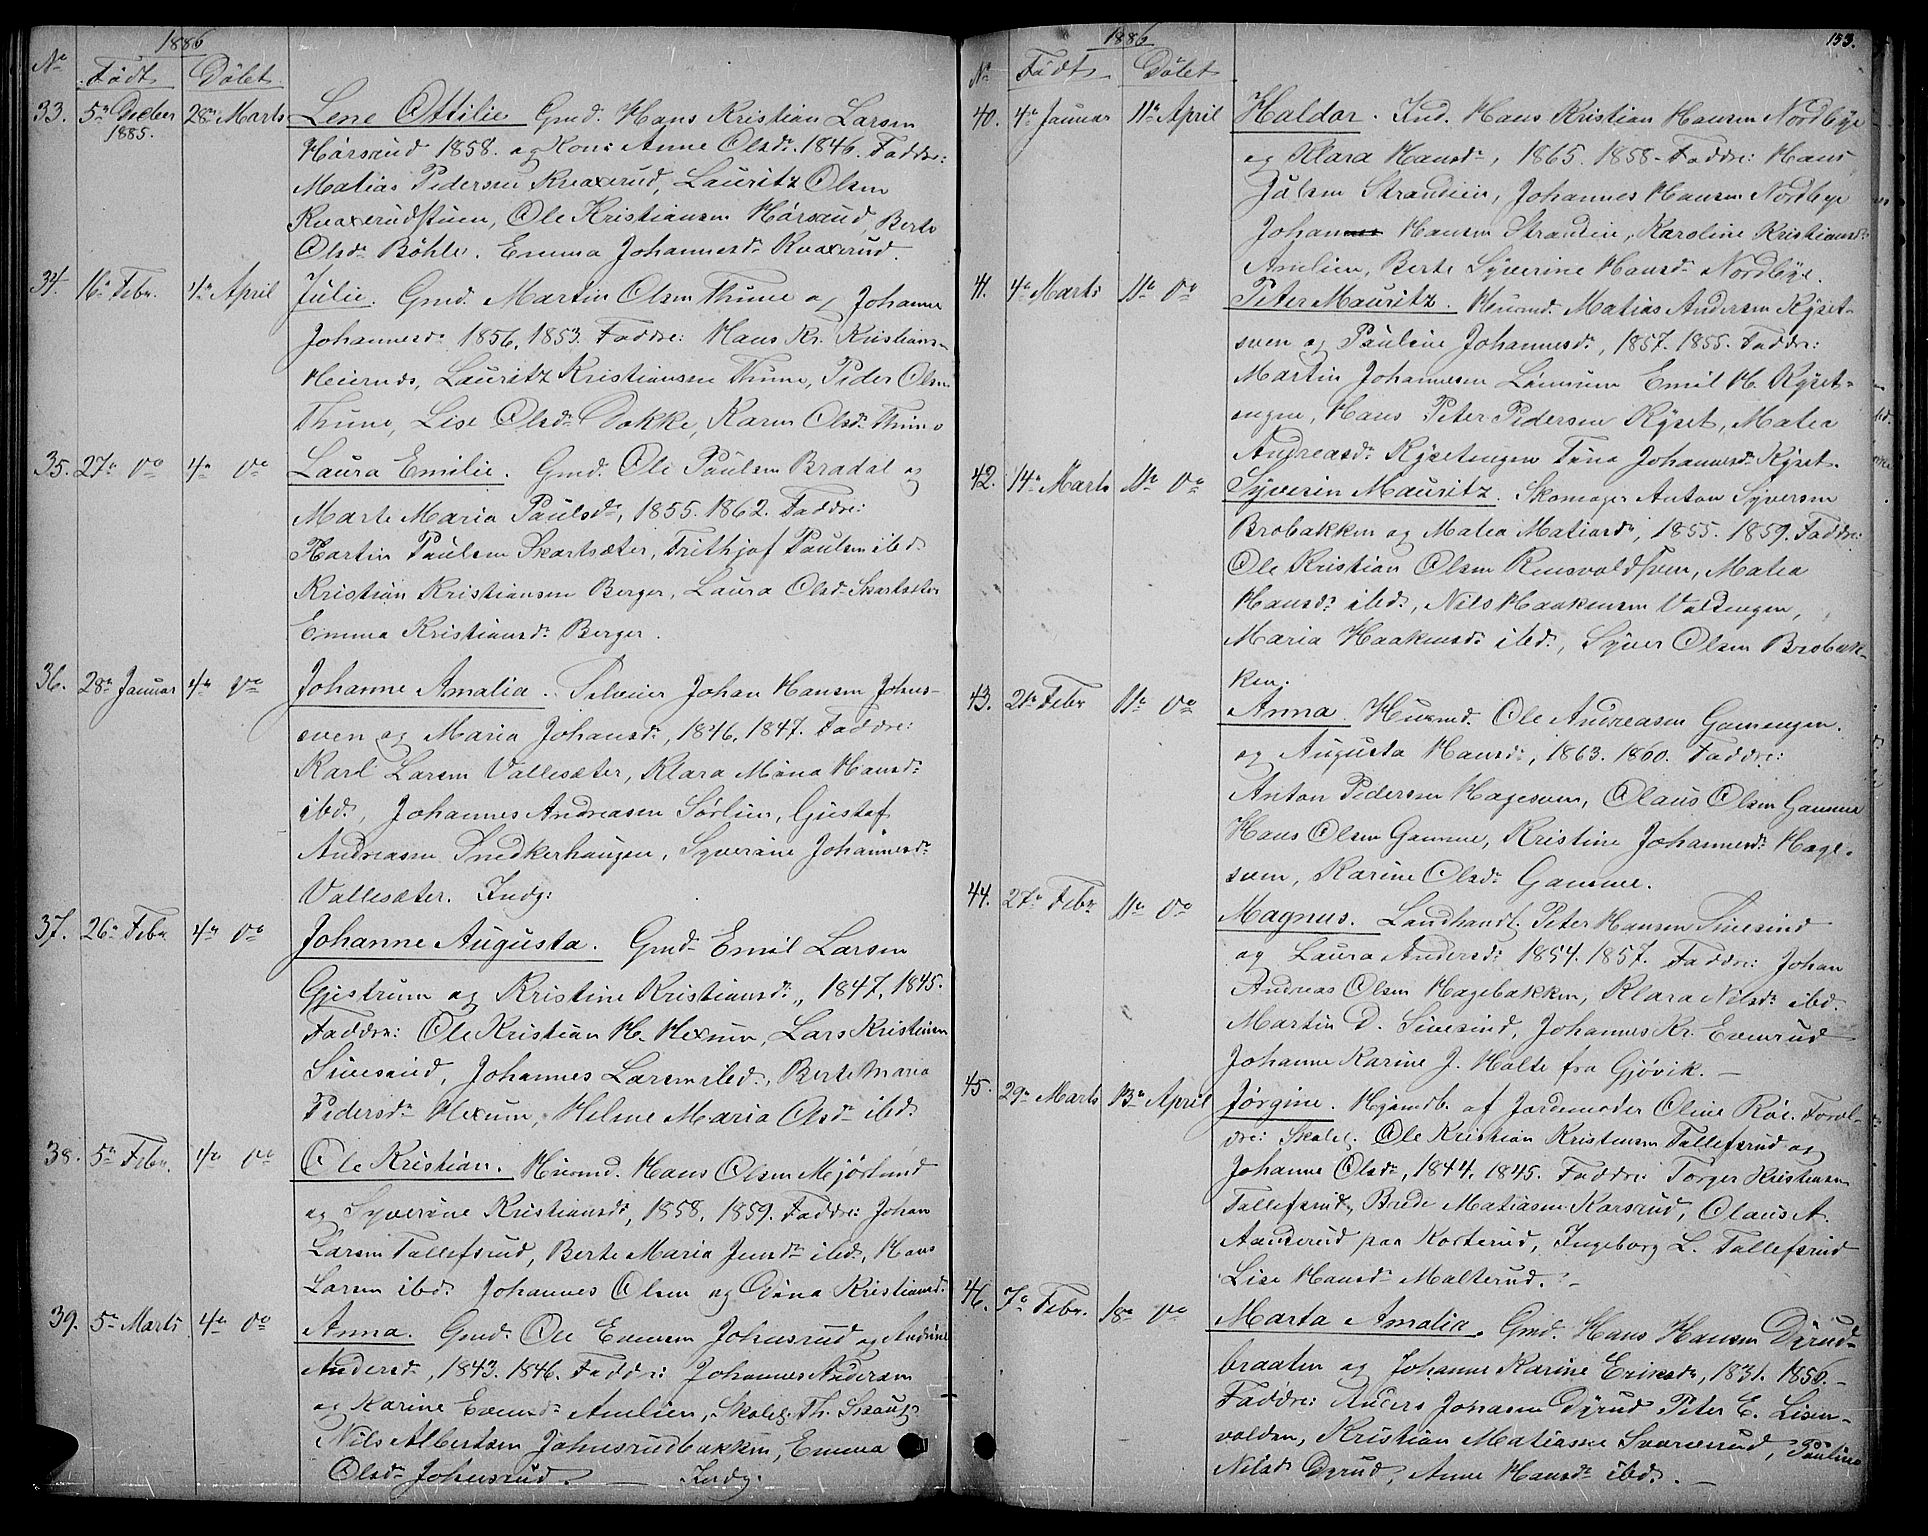 1886
No Født Døbt
33. 5te Decbr 1885. 28de Marts Lene Ottilie Gmd. Hans Kristian Larsen
Hørsrud 1858. og Kone Anne Olsdr. 1846. Faddre:
Matias Pedersen Knaxerud, Lauritz Olsen
Knaxerudstuen, Ole Kristiansen Hørsrud, Berte
Olsdr Bøhle, Emma Johannesdr. Knaxerud.
34. 16de Febr. 4de April Julie. Gmd. Martin Olsen Thune og Johanne
Johannesdr 1856, 1853. Faddre: Hans Kr. Kristians-
Lauritz Kristiansen Thune, Peder Olsen
Thune, Lise Olsdr. Dokke, Karen Olsdr. Thune
35. 27de do 4de do Laura Emilie. Gmd. Ole Paulsen Bradal og
Marte Maria Paulsdr, 1855. 1862. Faddre:
Martin Paulsen Skartsæter, Frithjof Paulsen ibd.
Kristian Kristiansen Berger, Laura Olsdr Skartsæter
Emma Kristiansdr. Berger.
36. 28de Januar 4de do Johanne Amalia. Johan Hansen Johns-
sven og Maria Johansdr, 1846, 1847. Faddre:
Karl Larsen Vallesæter, Klara Mina Hansdr
ibd., Johannes Andreasen Sørlien, Gustaf
Andreasen Snedkerhaugen, Syverine Johannesdr.
Vallesæter. Indg:
37. 26de Febr 4de do Johanne Augusta. Gmd. Emil Larsen
Gjestrum og Kristine Kristiansdr., 1847, 1845.
Faddre: Ole Kristian H. Hexum, Lars Kristiansen
Sivesind, Johannes Larsen ibd., Berte Maria
Pedersdr Hexum, Helene Maria Olsdr ibd.
38. 5te Febr. 4de do Ole Kristian. Husmd. Hans Olsen Mjørlund
og Syverine Kristiansdr, 1858, 1859. Faddre: Johan
Larsen Tollefsrud, Berte Maria Jensdr ibd., Hans
Larsen ibd. Johannes Olsen og Dina Kristiansd.
39. 5te Marts 4de do Anna. Gmd. Ole Evensen Johnsrud og Andrine
Andersdr, 1843. 1846. Faddre: Johannes Andersen
og Karine Evensdr Amlien, Skolel. Th. Skaug
Nils Albertsen Johnsrudbakken, Emma
Olsdr Johnsrud. Indg.
1886 153.
No Født Døbt
40. 4de Januar 11te April Haldor. Ind. Hans Kristian Hansen Nordbye
og Klara Hansdr, 1865. 1858. Faddre: Hans
Julsen Strandlien, Johannes Hansen Nordbye
Johan Hansen Karoline Kristiansdr
Amlien, Berte Syverine Hansdr Nordbye.
41. 4de Marts 11te do Peter Mauritz. Husmd. Matias Andersen Ryset-
sven og Pauline Johannesdr, 1857. 1855. Faddre:
Martin Johannesen Emil H. Ryset-
engen, Hans Peter Pedersen Ryset, Matea
Andreasdr Rysetengen Tina Johannesdr Ryset.
42. 14de Marts 11te do Syverin Mauritz. Skomager Anton Syversen
Brobakken og Matea Matiasdr, 1855. 1859. Faddre:
Ole Kristian Olsen Rensvoldsven, Matea
Hansdr ibd., Nils Haakensen Voldengen,
Maria Haakensdr ibd., Syver Olsen Brobak-
ken.
43. 21de Febr 11te do Anna. Husmd. Ole Andreasen Gammengen.
og Augusta Hansdr, 1863. 1860. Faddre:
Anton Pedersen Hagesven, Olaus Olsen Gamme
Hans Olsen Gamme, Kristine Johannesdr. Hage-
sven, Karine Olsdr. Gamme.
44. 27de Febr. 11te do Magnus. Landhandl. Peter Hansen Sivesind
og Laura Andersdr 1854. 1857. Faddre: Johan
Andreas Olsen Hagebakken, Klara Nilsdr ibd.
Martin D. Sivesind, Johannes Kr. Evenrud
Johanne Karine J. Holte fra Gjøvik.
45. 29de Marts 13de April Jørgine. Hjemdb. af Jordemoder Oline Røe. Foræl-
dre: Skolel. Ole Kristian Kristensen Tollefsrud og
Johanne Olsdr, 1844, 1845. Faddre: Torger Kristensen
Tollefsrud, Brede Matiasen Karsrud, Olaus A.
Aanderud paa Korterud, Ingeborg L. Tollefsrud
Lise Hansdr Malterud.
46. 7de Febr. 18de do Marta Amalia. Gmd. Hans Hansen Dyrud-
braaten og Johanne Karine Eriksdr, 1831. 1856.
Faddre: Anders Johansen Dyrud Peter E. Lisen-
volden, Kristian Matiassen Svarverud, Pauline
Nilsdr Dyrud, Anne Hansdr ibd.